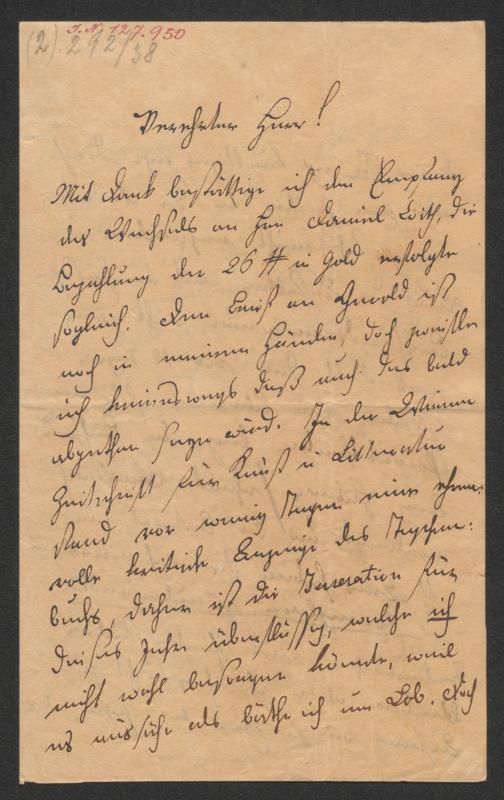 J. N. 127.950
(2) 292/38
Verehrter Herr!
Mit Dank bestättige ich den Empfang
des Wechsels an Hrn Daniel Löith, die
Bezahlung der 26 # in Gold erfolgte
sogleich. Den Brief an Gerold ist
noch in meinen Händen, doch zweifle
ich keineswegs daß auch das bald
abgethan seyn wird. In der Wiener
Zeitschrift für Kunst u Litteratur
stand vor wenig Tagen eine ehren-
volle kritische Anzeige des Taschen-
buchs, daher ist die für
dieses Jahr überflüssig, welche ich
nicht wohl besorgen könnte, weil
es aussähe als bäthe ich um Lob. Noch